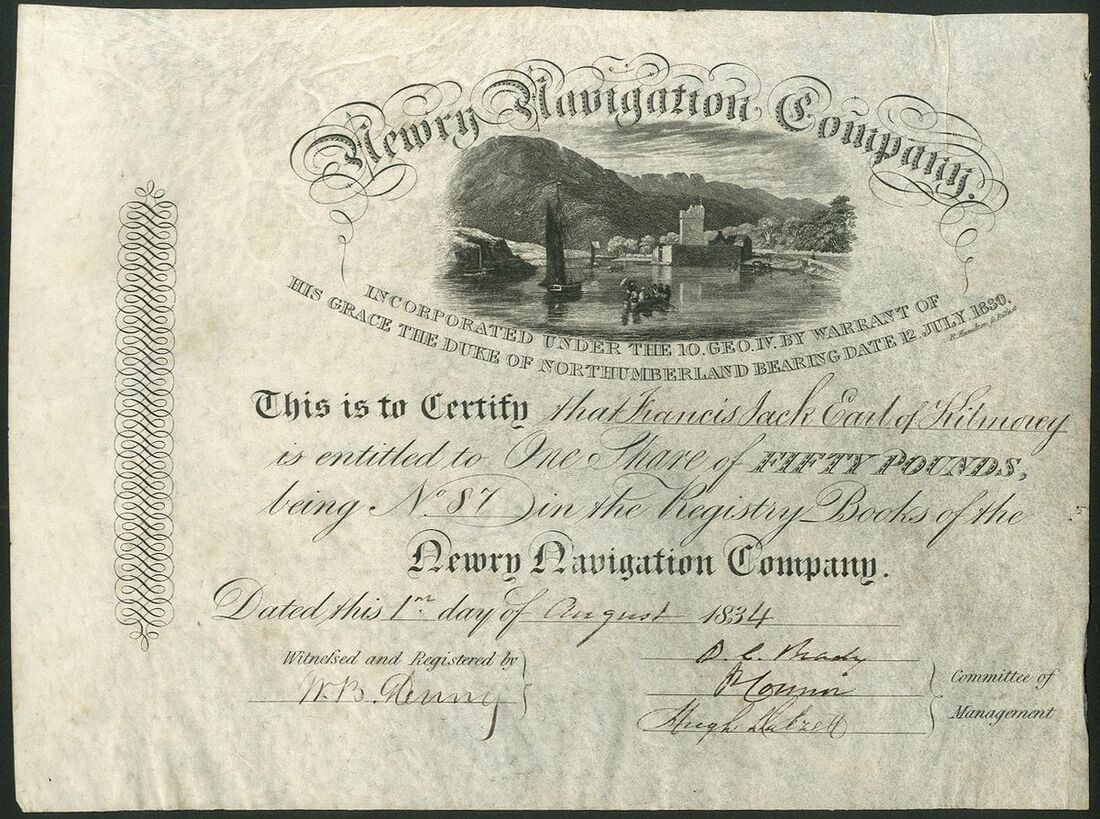 Newry Navigation Company.
INCORPORATED UNDER THE 10. GEO. IV. BY WARRANT OF
HIS GRACE THE DUKE OF NORTHUMBERLAND BEARING DATE 12 JULY 1830.
This is to Certify that Francis Jack Earl of Kilmorey
is entitled to One Share of FIFTY POUNDS,
being No. 87 in the Registry Books of the
Newry Navigation Company.
Dated this 1st day of August 1834
Witneſsed and Registered by
W. B. Denny
D. C. Brady
P Connor
Hugh
Committee of
Management